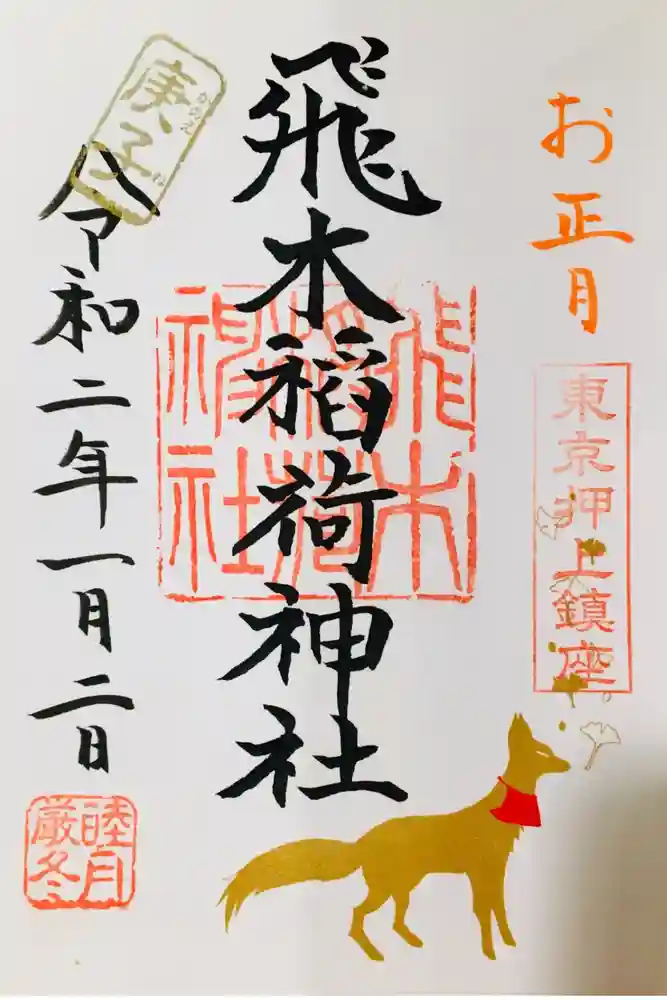 お正月
東京押上鎮座
飛木稲荷神社
飛木
稲荷
神社
庚子
かのえ
ね
令和二年一月二日
睦月
厳冬